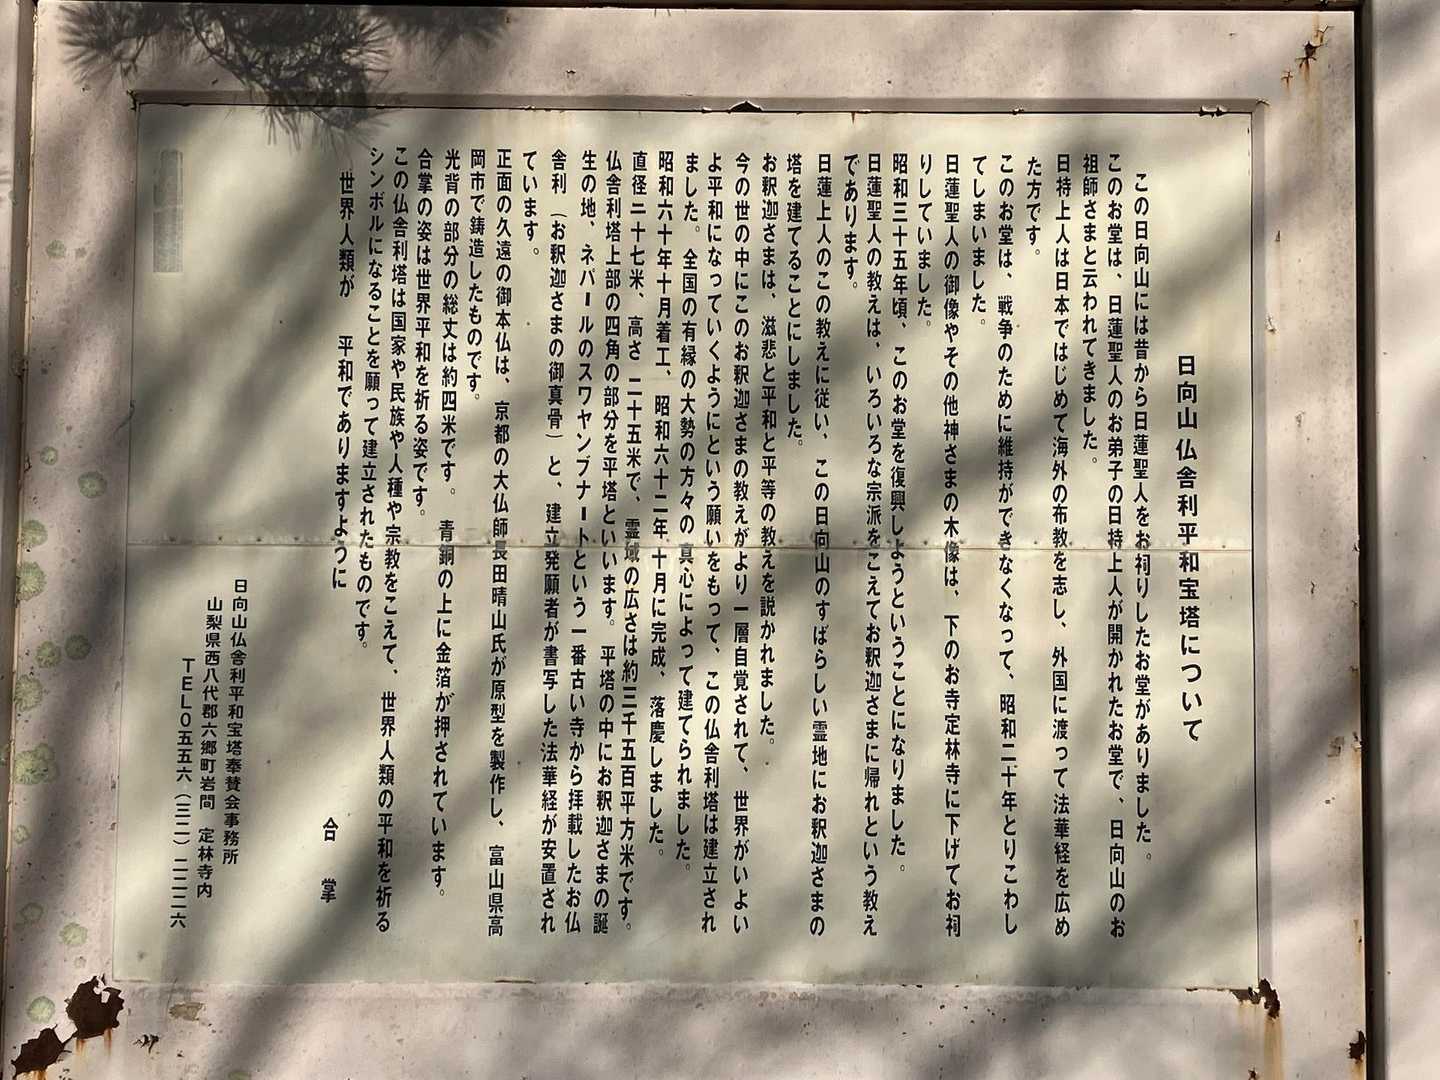 日向山仏舎利平和宝塔について
この日向山には昔から日蓮聖人をお祠りしたお堂がありました。
このお堂は、日蓮聖人のお弟子の日持上人が開かれたお堂で、日向山のお
祖師さまと云われてきました。
日持上人は日本ではじめて海外の布教を志し、外国に渡って法華経を広め
た方です。
このお堂は、戦争のために維持ができなくなって、昭和二十年とりこわし
てしまいました。
日蓮聖人の御像やその他神さまの木像は、下のお寺定林寺に下げてお祠
りしていました。
昭和三十五年頃、このお堂を復興しようということになりました。
日蓮聖人の教えは、いろいろな宗派をこえてお釈迦さまに帰れという教え
であります。
日蓮上人のこの教えに従い、この日向山のすばらしい霊地にお釈迦さまの
塔を建てることにしました。
お釈迦さまは、滋悲と平和と平等の教えを説かれました。
今の世の中にこのお釈迦さまの教えがより一層自覚されて、世界がいよい
よ平和になっていくようにという願いをもって、この仏舎利塔は建立され
ました。全国の有縁の大勢の方々の真心によって建てられました。
昭和六十年十月着工、昭和六十二年十月に完成、落慶しました。
直径二十七米、高さ二十五米で、霊域の広さは約三千五百平方米です。
仏舎利塔上部の四角の部分を平塔といいます。平塔の中にお釈迦さまの誕
生の地、ネパールのスワヤンブナートという一番古い寺から拝載したお仏
舎利（お釈迦さまの御真骨）と、建立発願者が書写した法華経が安置され
ています。
正面の久遠の御本仏は、京都の大仏師長田晴山氏が原型を製作し、富山県高
岡市で鋳造したものです。
光背の部分の総丈は約四米です。青銅の上に金箔が押されています。
合掌の姿は世界平和を祈る姿です。
この仏舎利塔は国家や民族や人種や宗教をこえて、世界人類の平和を祈る
シンボルになることを願って建立されたものです。
世界人類が 平和でありますように
合掌
日向山仏舎利平和宝塔奉賛会事務所
山梨県西八代郡六郷町岩間 定林寺内
TEL０五五六（三二）二二二六